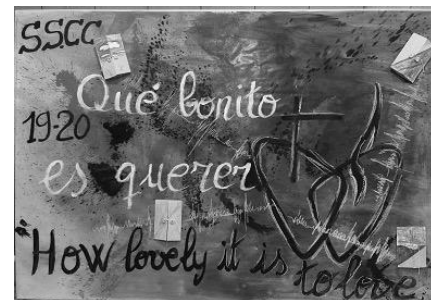 SSCC
Qué bonito
19-20
es querer
"How lovely it is
to love.